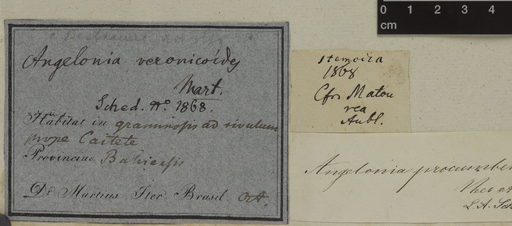 Angelonia veronicoides
Mart.
Sched. No. 1868.
Habitat in graminosis ad rivulum
prope Caitete
Provinciae Bahiensis
Dr Martius Iter Brasil
Stemodia
1868
Cfr Matou
rea
Aubl.
Angelonia procumben
0 1 2 3 4
cm